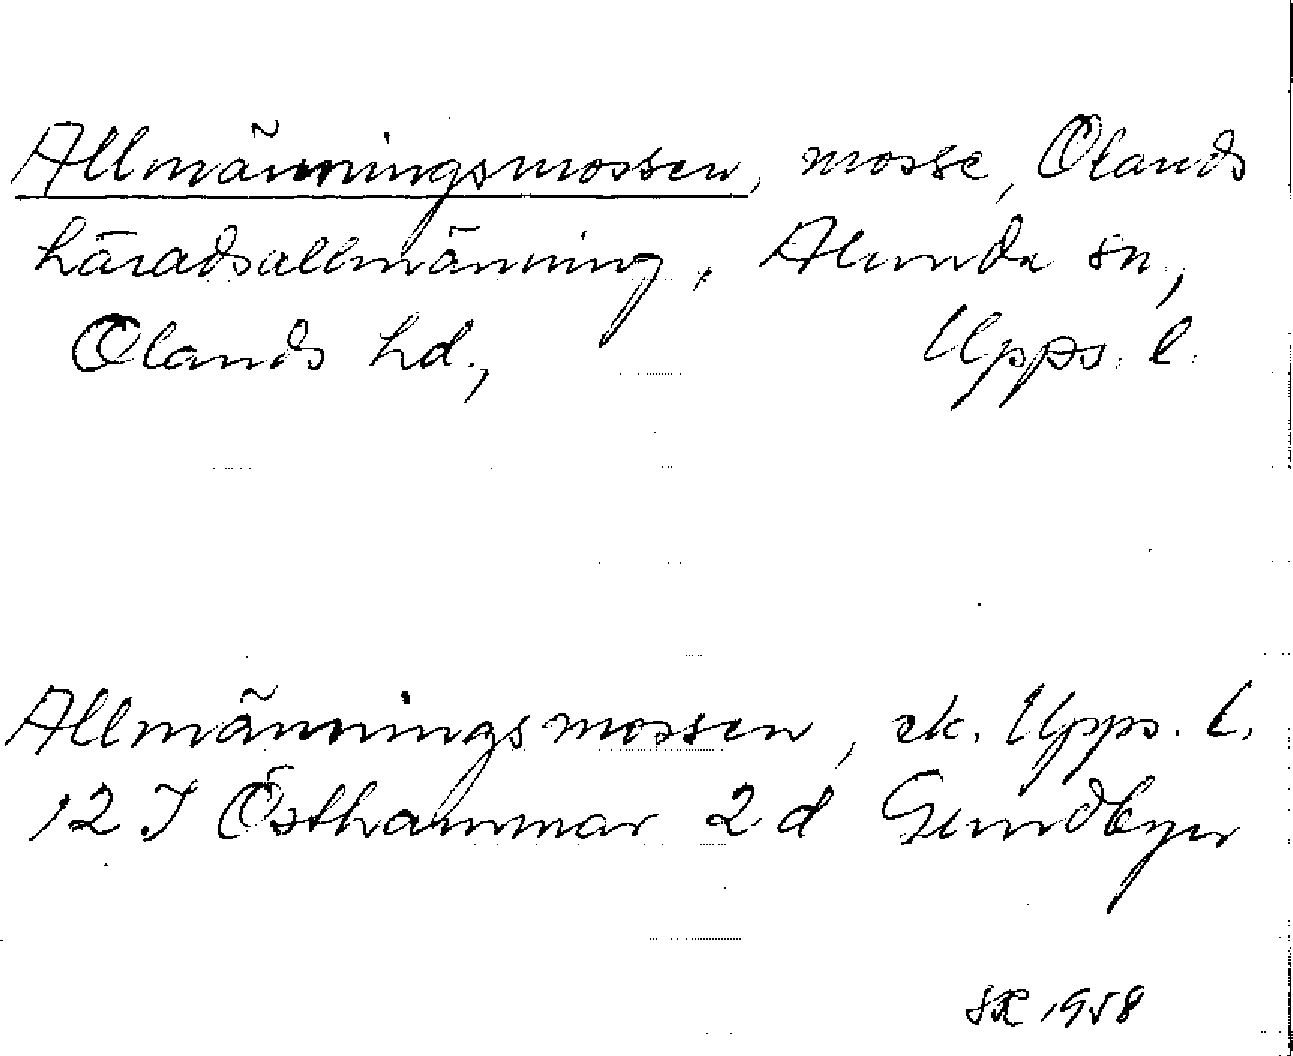 Allmänningsmossen, mosse, Olands
häradsallmänning, Alunda sn,
Olands hd., Upps. l.
Allmänningsmossen, ek. Upps. l.
12 I Östhammar 2 d Gundbyn
1958